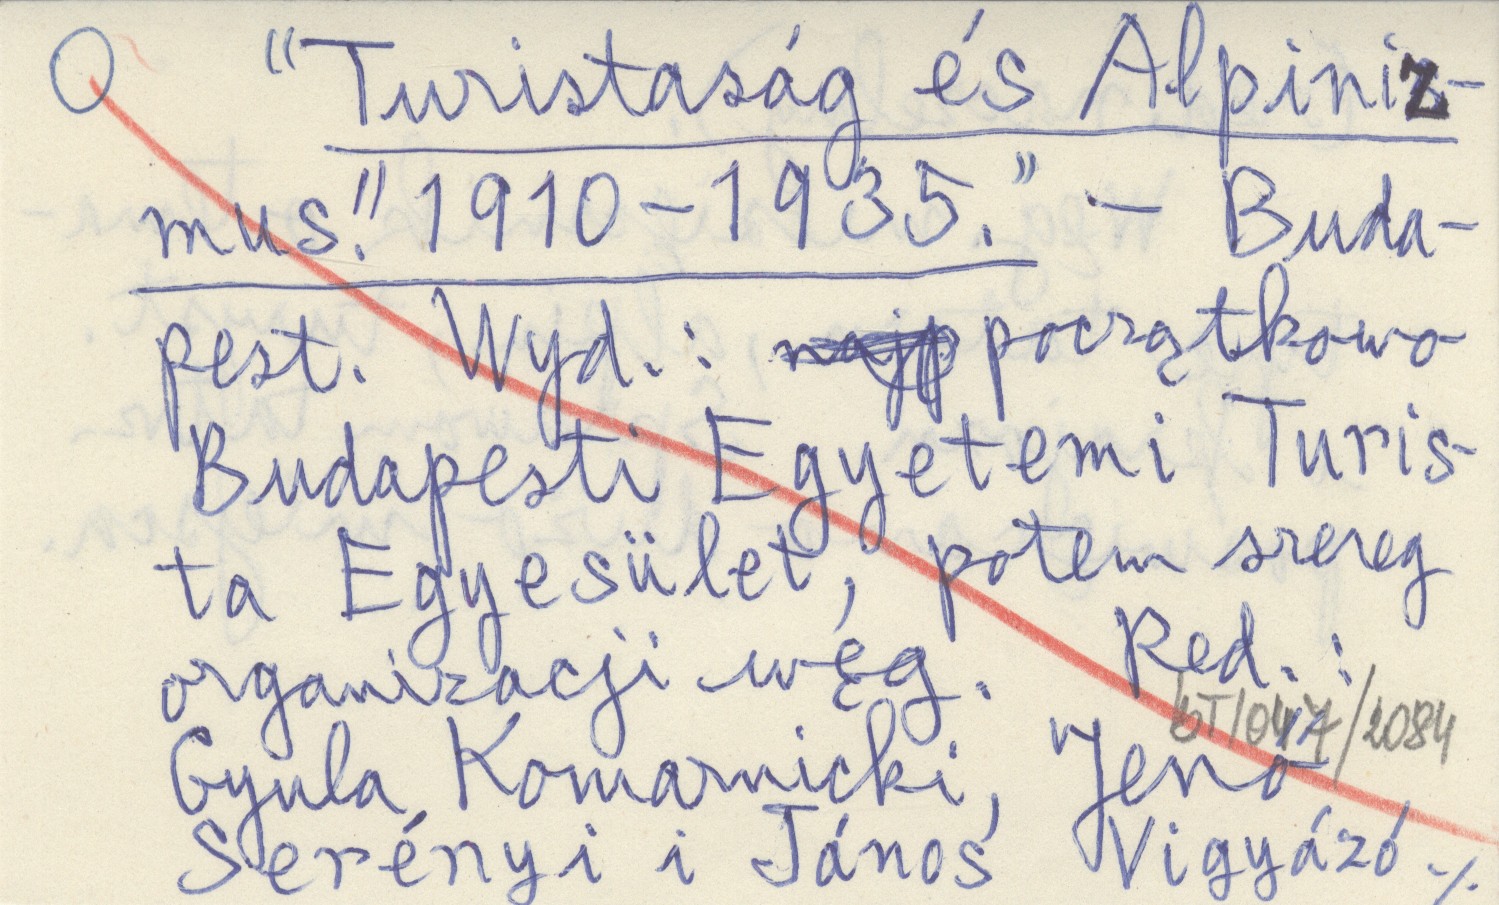 "Turistaság és Alpiniz-
mus." 1910-1935." - Buda-
pest. Wyd.: początkowo
Budapesti Egyetemi Turis-
ta Egyesület, potem szereg
organizacji węg. Red.:
bT/047/2084
Gyula Komarnicki, Jenő
Serényi i János Vigyázó ./.